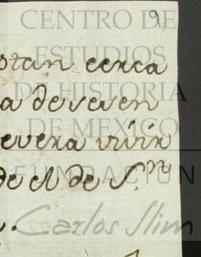 9
CENTRO DE
ESTUDIOS
DE HISTORIA
DE MEXICO
FUNDACIÓN
Carlos Slim
otan cerca
a deveven
evera vivir
de el de S.n